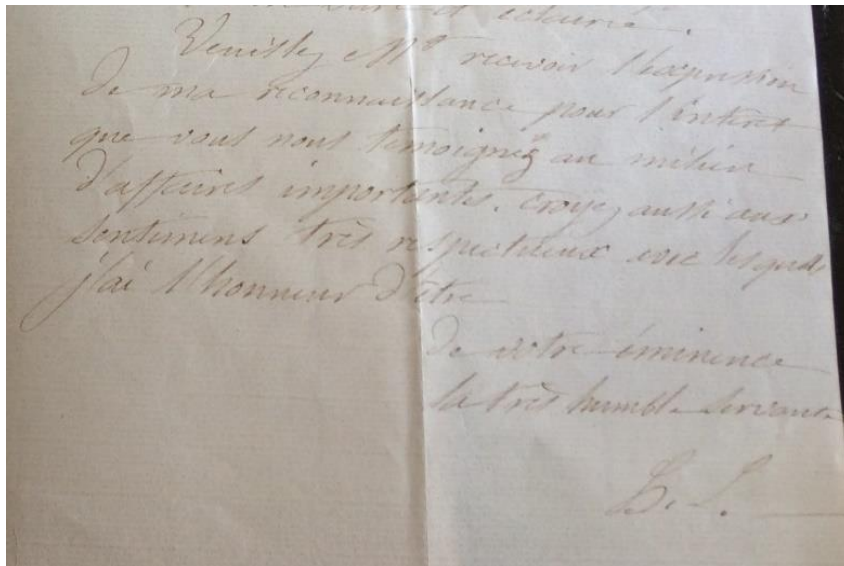 et éclairé.
Veuillez Mgr recevoir l'expression
de ma reconnaissance pour l'intéret
que vous nous témoignez au milieu
d'affaires importantes. Croyez aussi aux
sentimens très respectueux avec lesquels
j'ai l'honneur d'être
de votre éminence
la très humble servante
L.